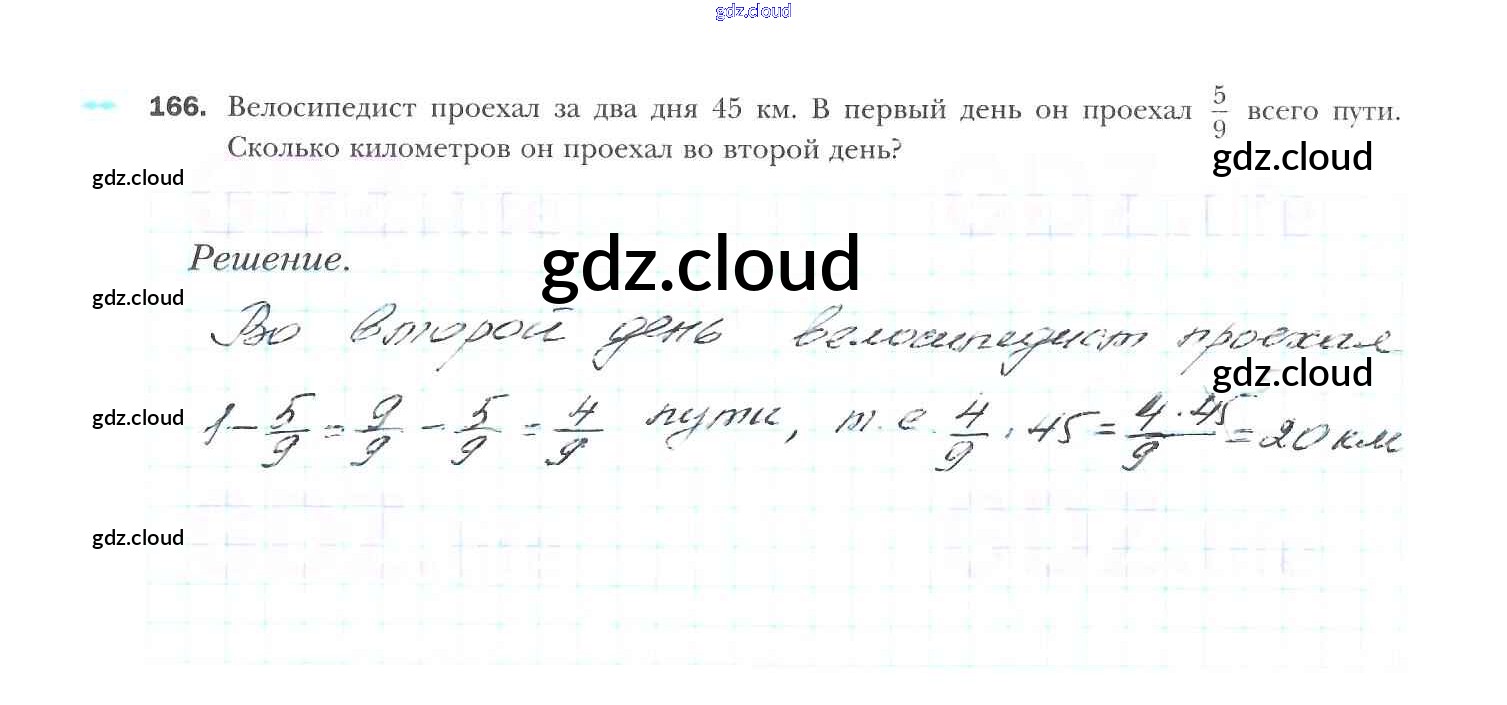 gdz.cloud
166. Велосипедист проехал за два дня 45 км. В первый день он проехал 5/9 всего пути.
Сколько километров он проехал во второй день?
gdz.cloud
gdz.cloud
Решение.
gdz.cloud
gdz.cloud
Во второй день велосипедист проехал
gdz.cloud
1 - 5/9 = 9/9 - 5/9 = 4/9 пути, т.е. 4/9 · 45 = 4·45/9 = 20 км
gdz.cloud
gdz.cloud